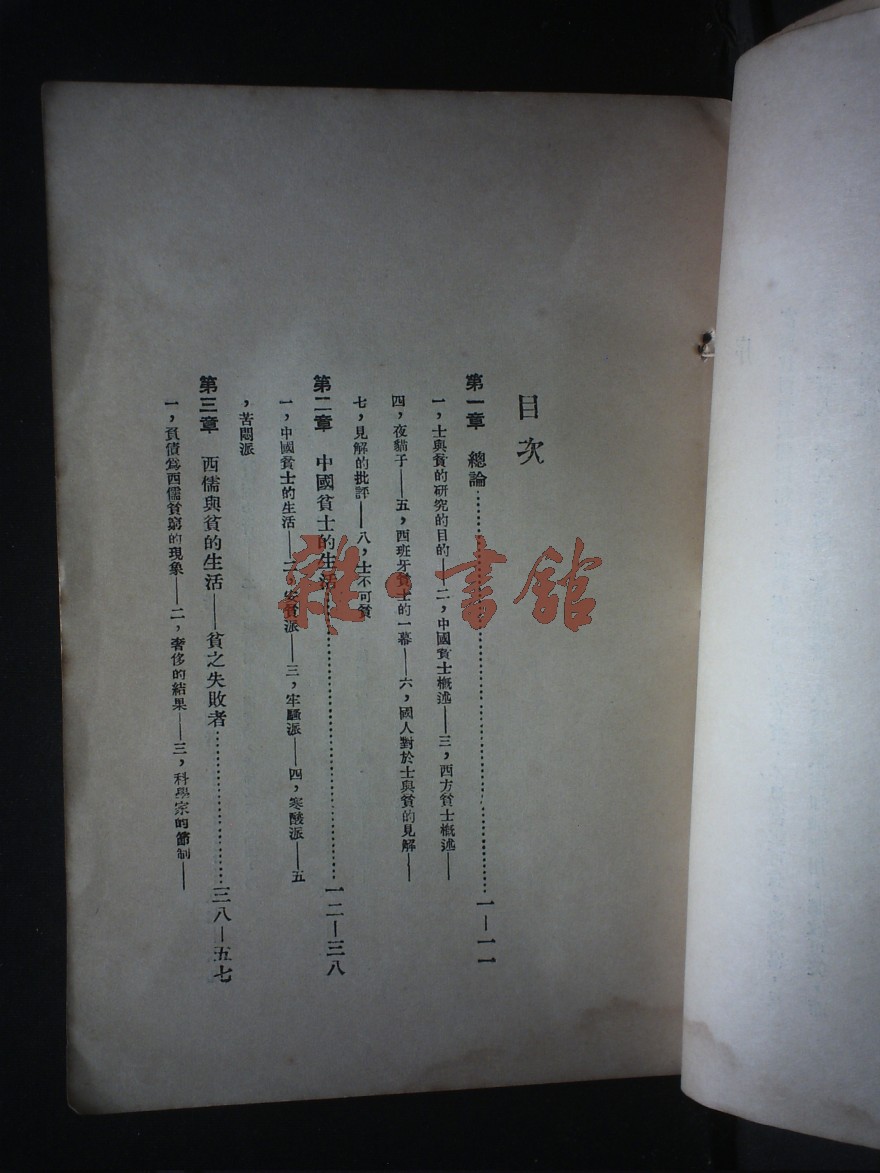 目次
第一章　總論……一—一一
一，士與貧的研究的目的——二，中國貧士概述——三，西方貧士概述——
四，夜貓子——五，西班牙貧士的一幕——六，國人對於士與貧的見解——
七，見解的批評——八，士不可貧
第二章　中國貧士的生活……一二—三八
一，中國貧士的生活——二，安貧派——三，牢騷派——四，寒酸派——五
，苦悶派
第三章　西儒與貧的生活——貧之失敗者……三八—五七
一，負債為西儒貧窮的現象——二，奢侈的結果——三，科學宗的節制——
雜·書館
序